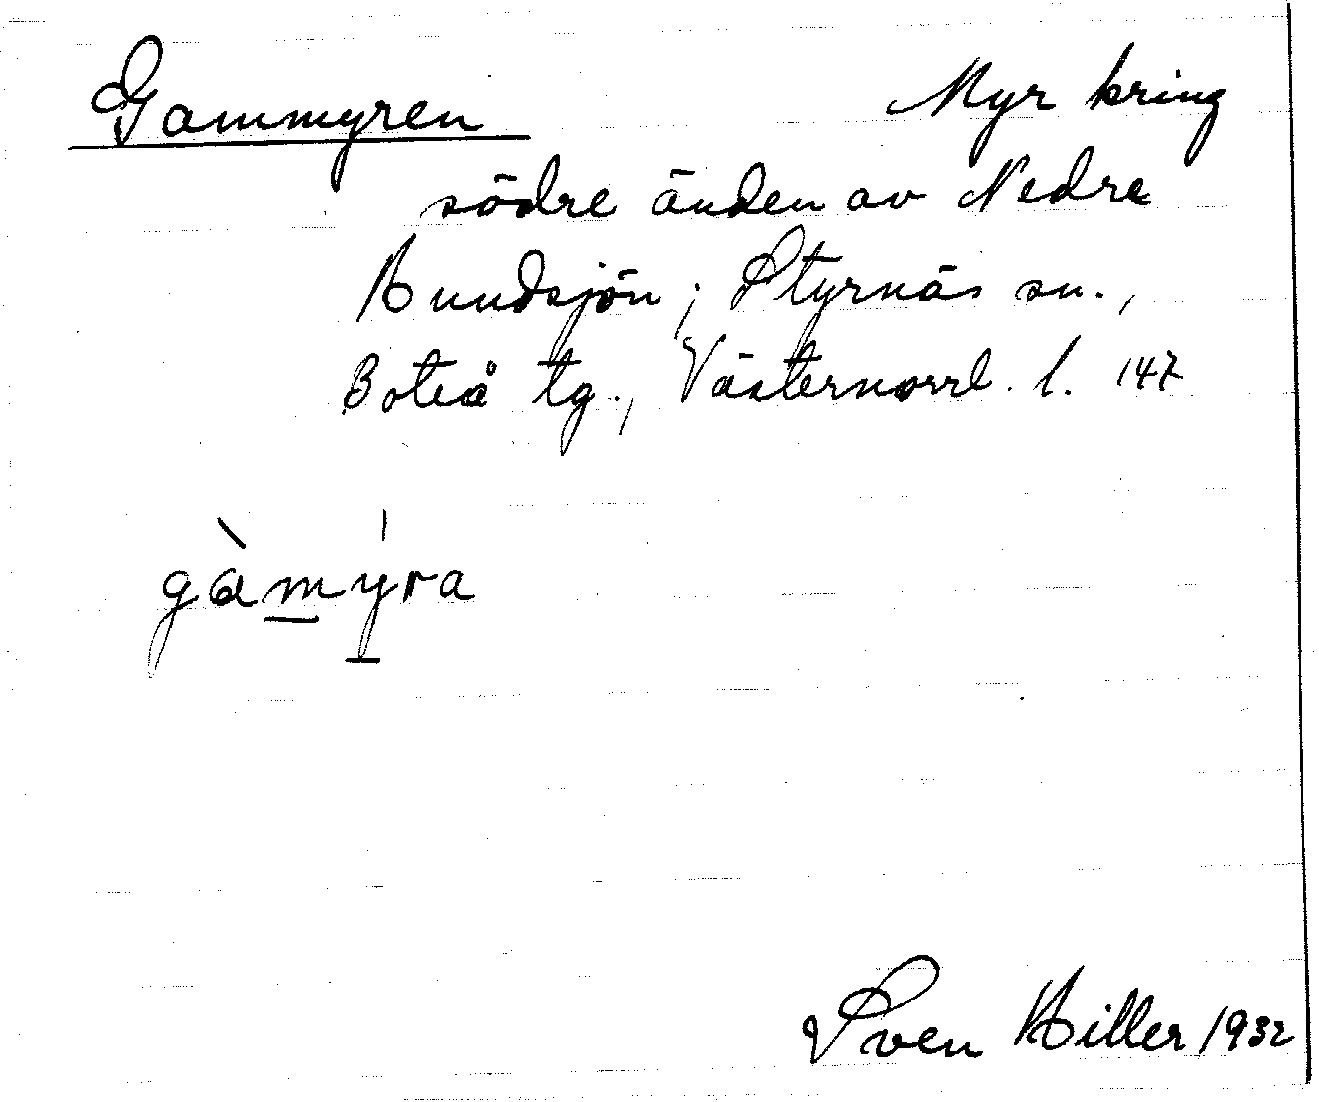 Gammyren Myr kring
södre änden av Nedre
Hundsjön; Styrnäs sn.,
Boteå tg., Västernorrl. l. 147
gàmýra
Sven Hiller 1932